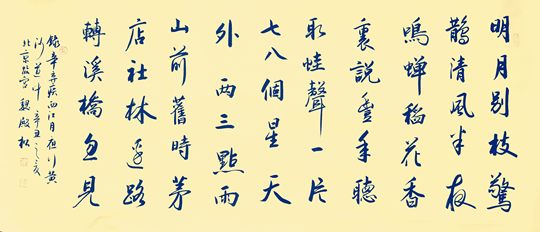 明月别枝驚
鵲清風半夜
鳴蟬稻花香
裏說豐年聽
取蛙聲一片
七八個星天
外兩三點雨
山前舊時茅
店社林邊路
轉溪橋忽見
錄辛弃疾西江月夜行黄
沙道中 辛丑之
北京故宫 魏殿松